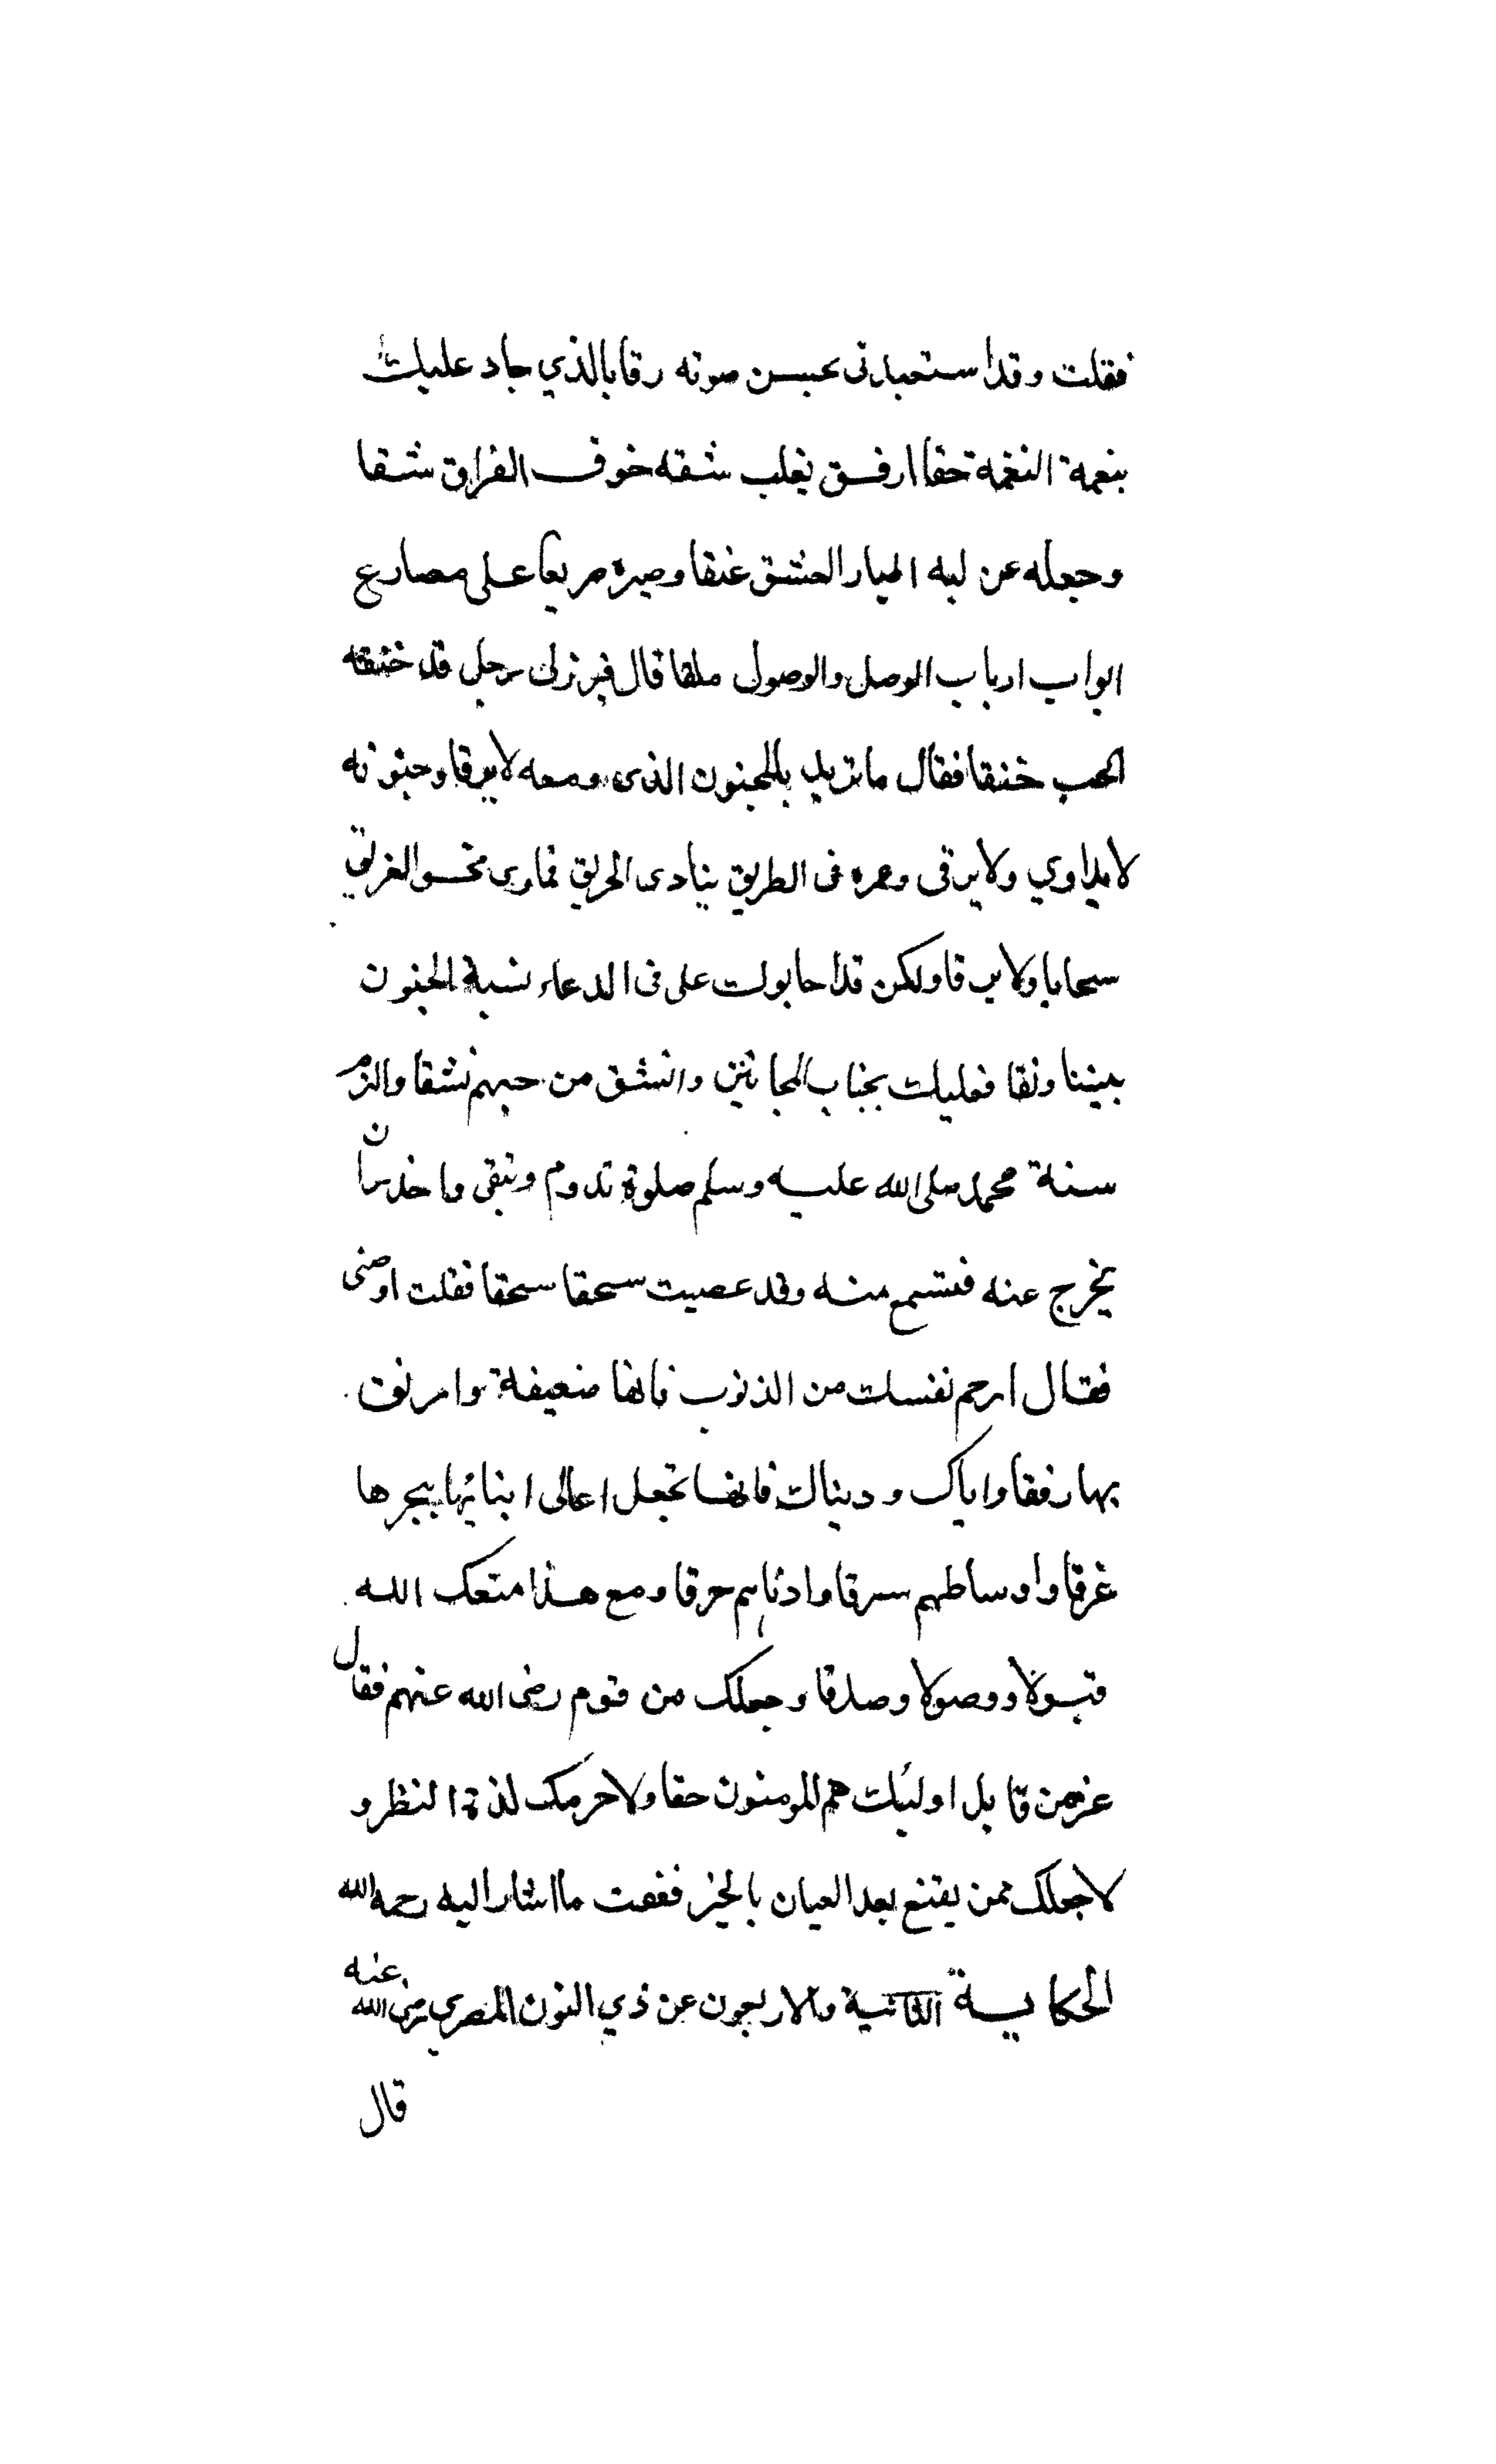 فقلت وقد استعبدنى بحسن صوته رقا بالذي جاد عليك
بنعمة النغمة حقا ارفق بقلب شقه خوف الفراق شقا
وجعله عن لبه العشق عنقا وصيره مر بعا على مصارع
ابواب ارباب الوصل والوصول ملقا قال فبرز لى رجل قد خنقه
الحب خنقا فقال ما تريد بالمجنون الذى دمعه لا يرقا وجنونه
لا يداوي ولا يرقى وعمره فى الطريق ينادى الحريق فما رى نحو الغريق
سحابا ولا برقا ولكن قد احابوك على فى الدعاء نسبة الجنون
بيننا ونقا فعليك بجناب المجانين وانشق من حبهم نشقا والزم
سنة محمد صلى الله عليه وسلم صلوة تدوم وتبقى وما خذر ان
يخرج عنه فتسمع منه وقد عصيت سحقا سحقا فقلت اوصنى
فقال ارحم نفسك من الذنوب فانها ضعيفة وارفق
بها رفقا واياك ودنياك فانها تجعل اعالى ابنائها ببحرها
غرقا واوساطهم سرقا وادناهم حرقا ومع هذا متعك الله
قبولا ووصولا وصدقا وجعلك من قوم رضى الله عنهم فقال
عز من قايل اوليك هم المومنون حقا ولا حرمك لذة النظر و
لا جعلك ممن يقنع بعد العيان بالخبر ففهمت ما اشار اليه رحمه الله
الحكاية الثانية والاربعون عن ذي النون المصري رضى الله عنه
قال